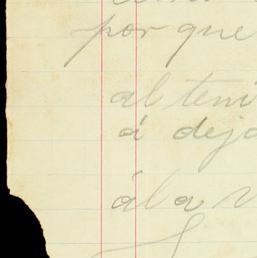 por que
al teni
á deja
ála v